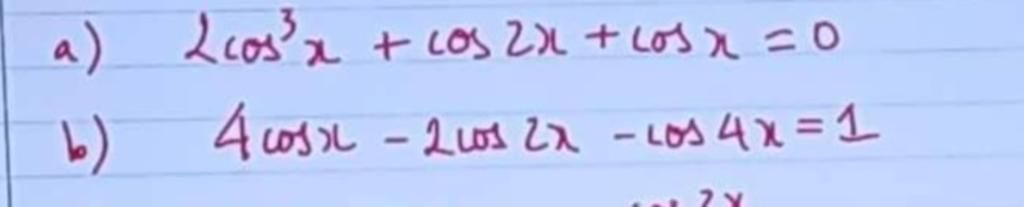 a) 2cos³x + cos 2x + cos x = 0
b) 4 cosx - 2cos 2x - cos 4x = 1